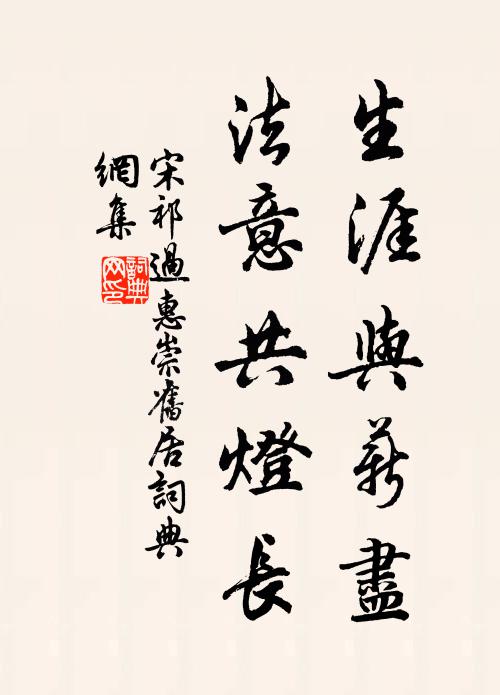 生涯與薪盡
法意共燈長
宋祁過惠崇舊居詞典
網集
詞典
網印